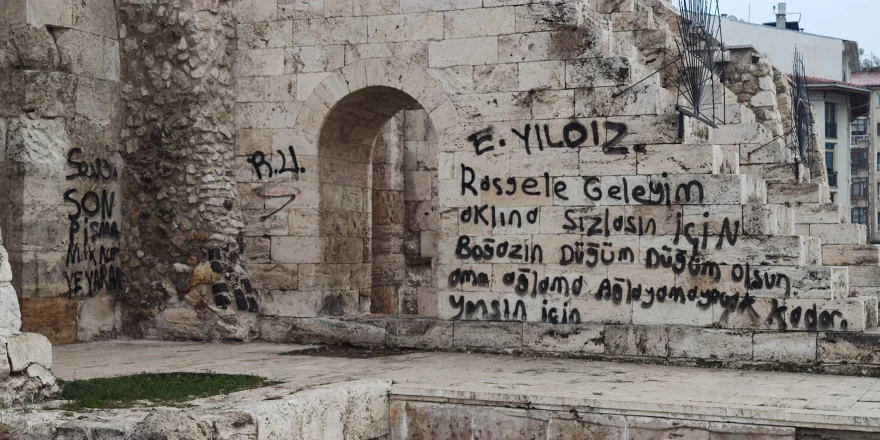 SON
PİŞMA
NLIK NE
YE YARAR
R.U.
E. YILDIZ.
Rasgele Geleyim
aklına sızlasın için
Boğazın Düğüm Düğüm olsun
ama ağlama Ağlayamayacak kadar.
yansın için